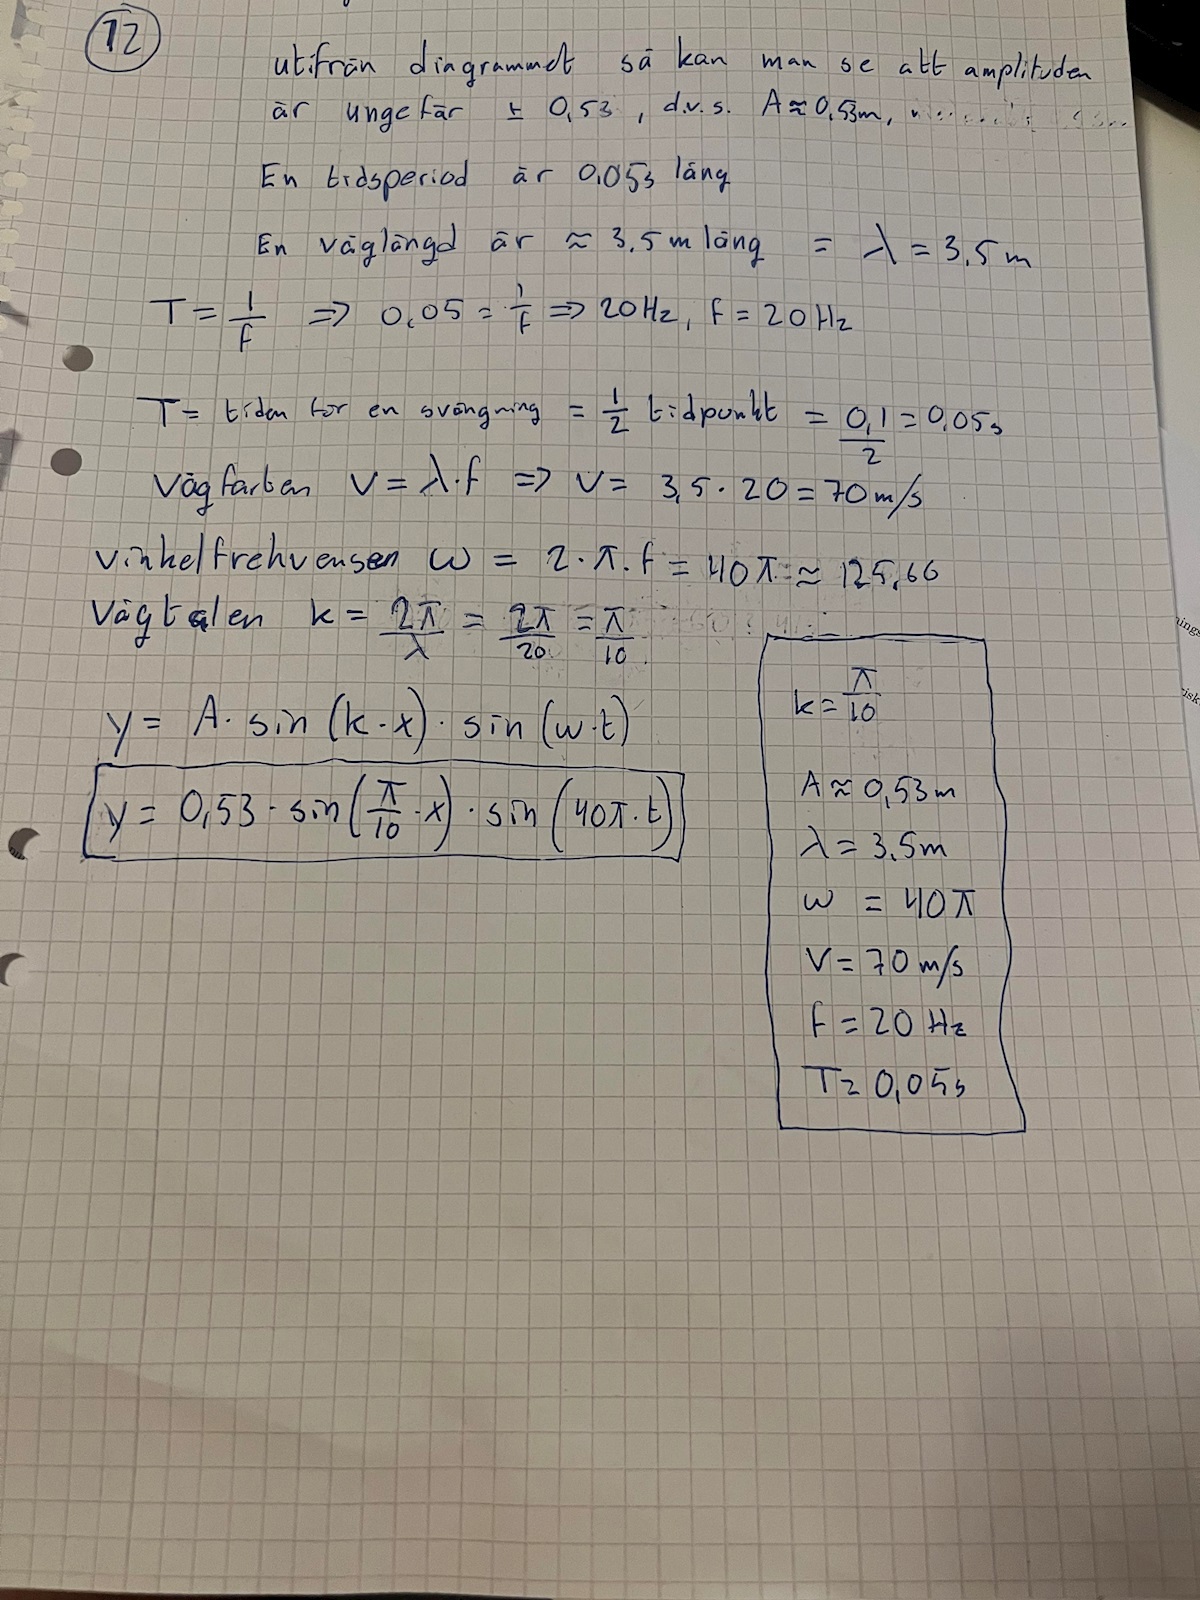 12
utifrån diagrammet så kan man se att amplituden
är ungefär ± 0,53, d.v.s. A ≈ 0,53m,
En tidsperiod är 0,05s lång
En våglängd är ≈ 3,5 m lång = λ = 3,5 m
T = 1/f => 0,05 = 1/f => 20 Hz, f = 20 Hz
T = tiden för en svängning = 1/2 tidpunkt = 0,1/2 = 0,05s
Vågfarten V = λ·f => V = 3,5 · 20 = 70 m/s
Vinkelfrekvensen ω = 2·π·f = 40π ≈ 125,66
Vågtalen k = 2π/λ = 2π/20 = π/10
y = A· sin (k·x) · sin (ω·t)
y = 0,53 · sin (π/10 · x) · sin (40π·t)
k = π/10
A ≈ 0,53m
λ = 3,5m
ω = 40π
V = 70 m/s
f = 20 Hz
T = 0,05s